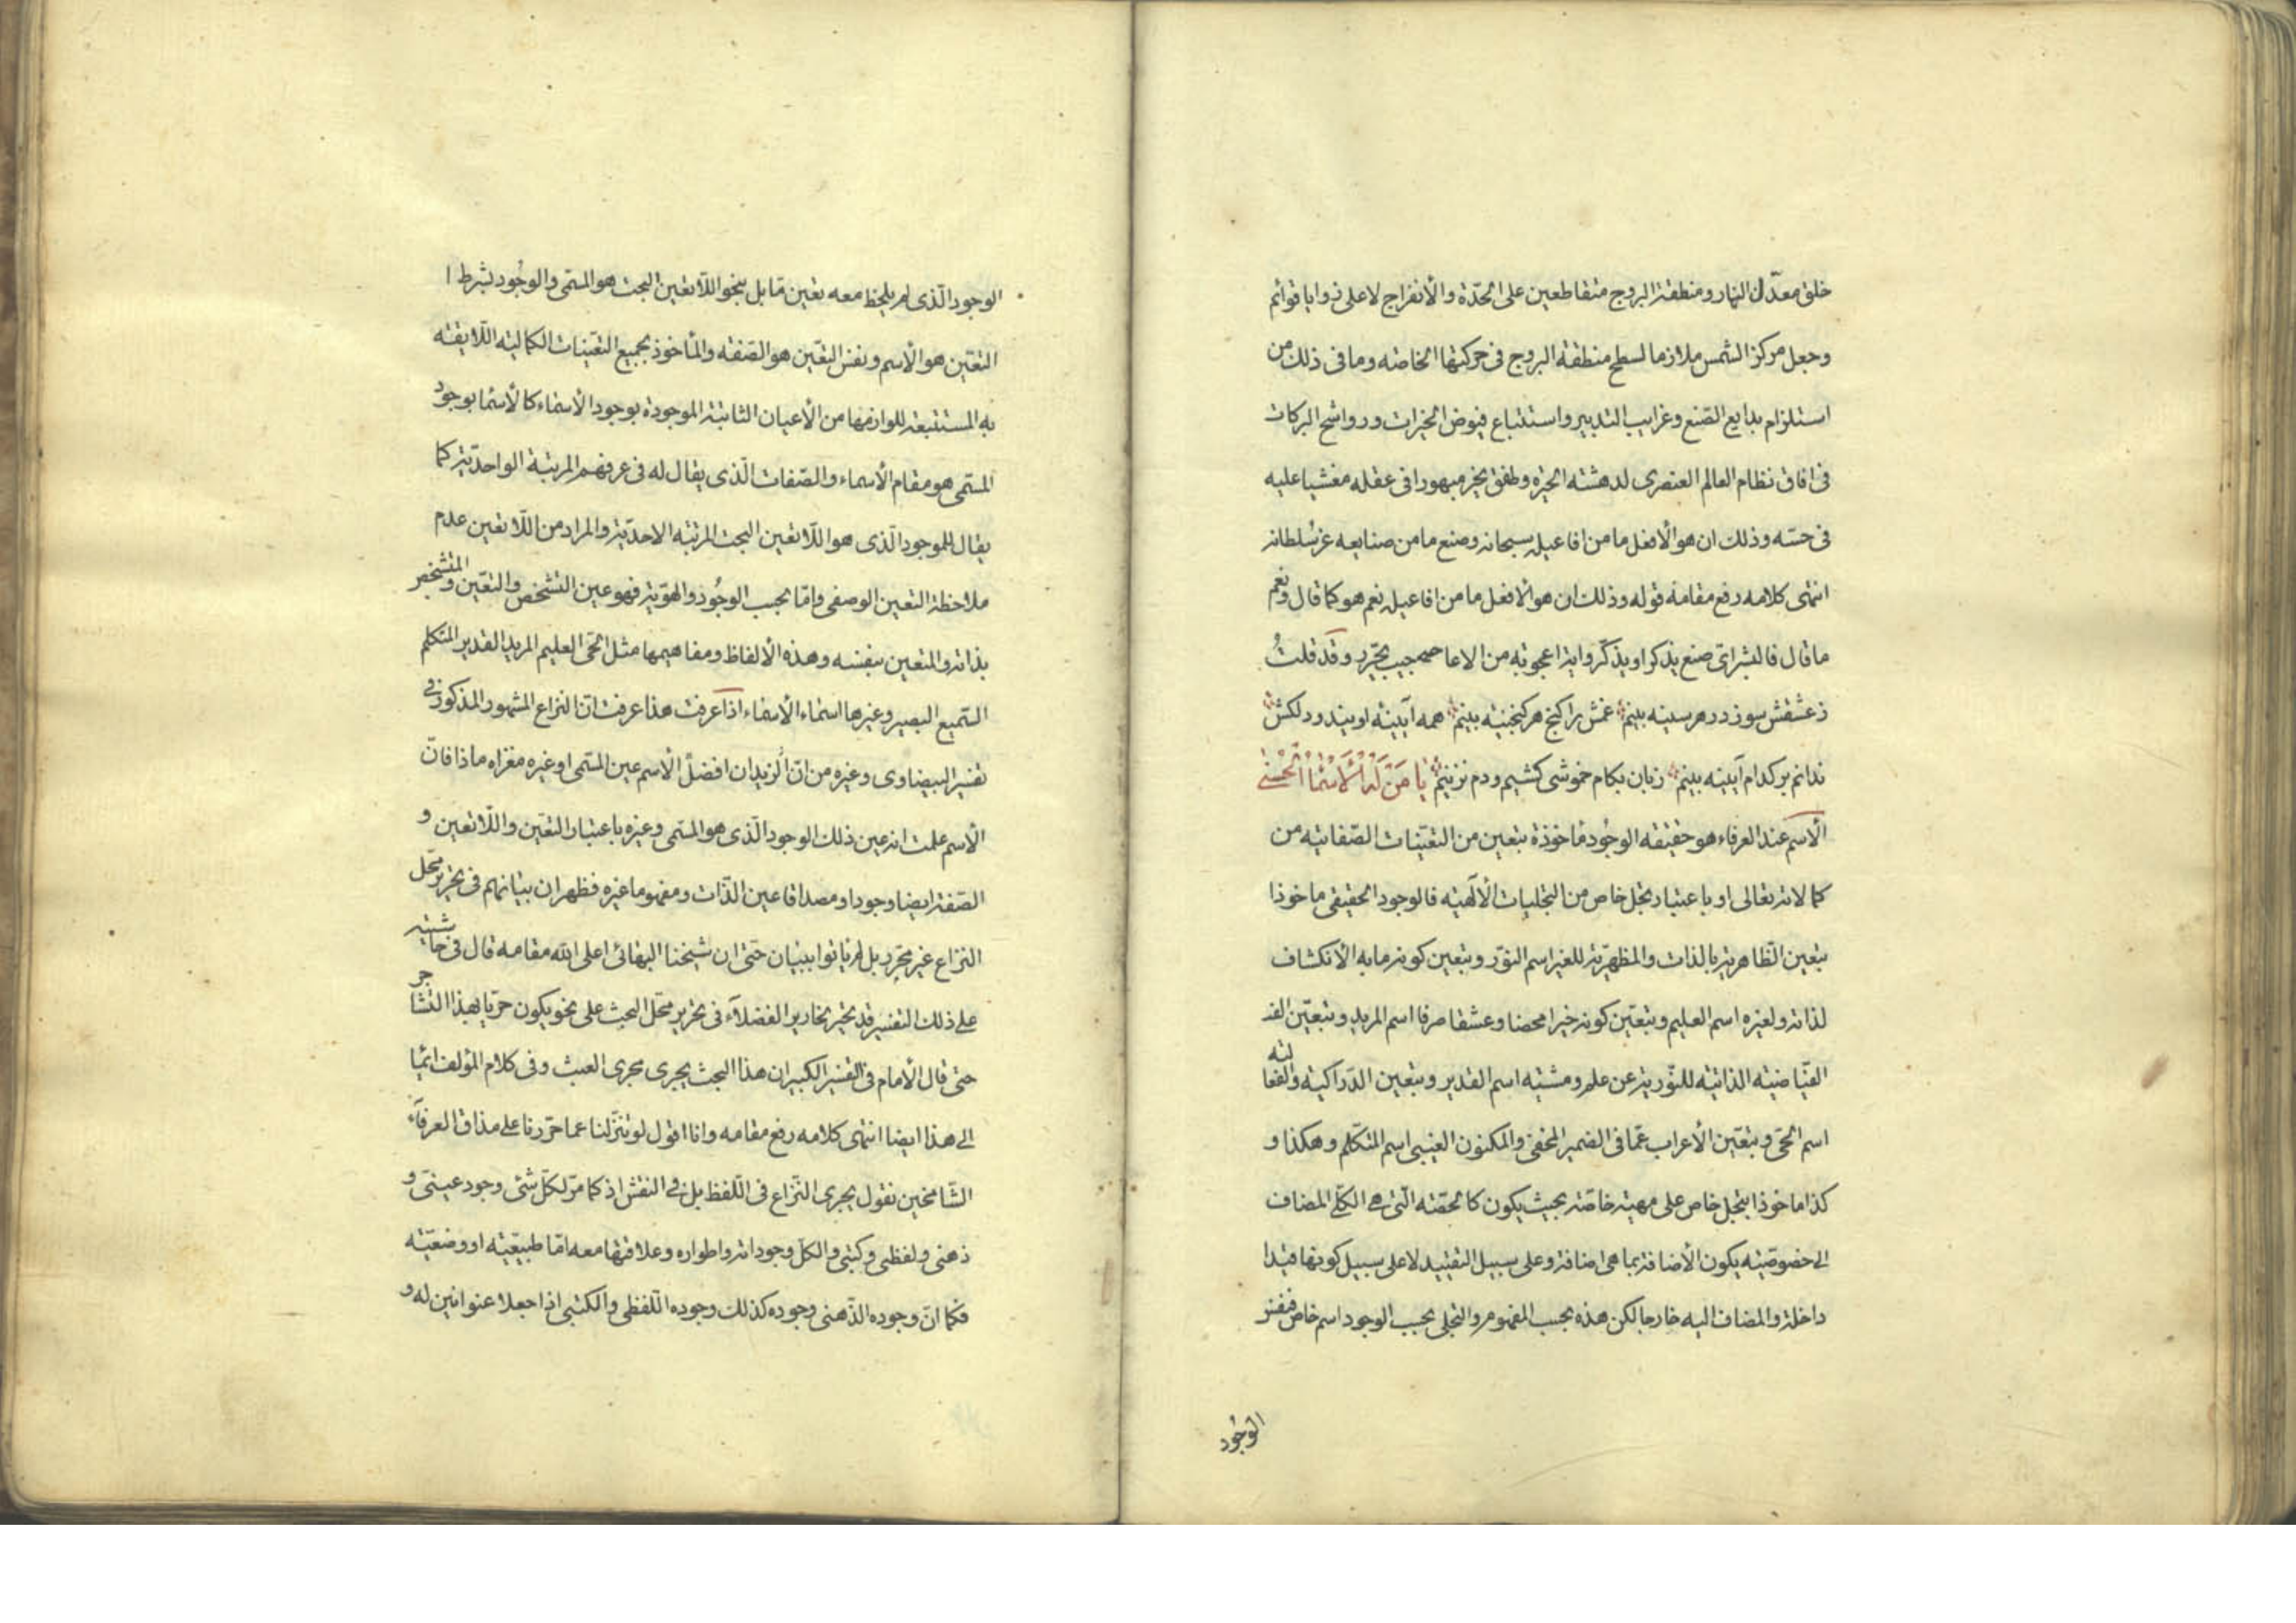 خلق معدّل النهار ومنطقة البروج متقاطعين على الحدّة والأنفراج لا على زوايا قوائم
وجعل مركز الشمس ملازما لسطح منطقة البروج فى حركتها الخاصه وما فى ذلك من
استلزام بدايع الصّنع وغرايب التدبير واستتباع فيوض الخيرات ورواشح البركات
فى افاق نظام العالم العنصرى لدهشته الحيرة وطفق يخر مبهورا فى عقله مغشيا عليه
فى حسّه وذلك ان هو الّا فعل ما من افاعيله سبحانه وصنع ما من صنايعه عز سلطانه
انتهى كلامه رفع مقامه قوله وذلك ان هو الا فعل ما من افاعيله نعم هو كما قال ونعم
ما قال فالبشر اىّ صنع يذكر او يذكّر واية اعجوبه من الاعاجيب يحرّر وقد قلتُ
ز عشقش سوز در هر سينه بينم غمش را كنج هر كنجينه بينم همه آيينه اويند و دلكش
ندانم بر كدام آيينه بينم زبان بكام خموشى كشيم و دم نزنيم يَا مَنْ لَهُ الْأَسْمَاءُ الْحُسْنى
الاسم عند العرفاء هو حقيقة الوجُود مأخوذة بتعين من التعيّنات الصّفاتيه من
كمالاته تعالى او باعتبار تجلّ خاص من التجليات الألهيّه فالوجود الحقيقى ماخوذا
بتعين الظّاهريّة بالذات والمظهريّة للغير اسم النوّر وبتعين كونه ما به الأنكشاف
لذاته ولغيره اسم العليم وبتعيّن كونه خيرا محضا وعشقا صرفا اسم المريد وبتعيّن الفـ
الفيّاضيّه الذاتيّه للنّوريّة عن علم ومشيّه اسم القدير وبتعين الدّراكيّه والفعاليّه
اسم الحىّ وبتعّين الأعراب عمّا فى الضمير المخفىّ والمكنون الغيبى اسم المتكلّم وهكذا و
كذا ماخوذا بتجل خاص على مهيّة خاصّة بحيث يكون كالحصّته الّتى هى الكلّى المضاف
الى خصوصيّه يكون الأضافة بما هى اضافة وعلى سبيل التقييد لا على سبيل كونها قيدا
داخلة والمضاف اليه خارجا لكن هذه بحسب المفهوم والتجلى بحسب الوجود اسم خاص فنفس
الوجُود
الوجود الّذى لم يلحظ معه تعين مّا بل بنحو اللّاتعين البحت هو المسمّى والوجُود بشرط ا
التعيّن هو الأسم ونفس التعّين هو الصّفة والمأخوذ بجميع التعيّنات الكماليه اللّايقة
به المستتبعة للوازمها من الأعيان الثابتة الموجودة بوجود الأسماء كالأسما بوجود
المسمّى هو مقام الأسماء والصّفات الّذى يقال له فى عرفهم المرتبة الواحديّة كما
يقال للموجود الّذى هو اللّاتعين البحت المرتبه الاحديّة والمراد من اللّاتعين عدم
ملاحظة التعين الوصفى وامّا بحسب الوجُود والهويّة فهو عين التشخص والتعيّن والمتشخص
بذاته والمتعين بنفسه وهذه الألفاظ ومفاهيمها مثل الحىّ العليم المريد القدير المتكلم
السّميع البصير وغيرها اسماء الأسماء اذا عرفت هذا عرفت انّ النزاع المشهور المذكور فى
تفسير البيضاوى وغيره من انّ الاسم عين المسمّى او غيره مغزاه ماذا فانّ
الأسم علمت انه عين ذلك الوجود الّذى هو المسمّى وغيره باعتبار التعيّن واللّاتعين و
الصّفة ايضا وجودا ومصداقا عين الذّات ومفهوما غيره فظهر ان بيانهم فى تحرير محلّ
النزاع غير محرّر بل لم ياتوا ببيان حتّى ان شيخنا البهائى اعلى الله مقامه قال فى حاشيته
على ذلك التفسير قد تحيّر نحارير الفضلاء فى تحرير محلّ البحث على نحو يكون حريّا بهذا التشاجر
حتى قال الأمام فى التفسير الكبير ان هذا البحث يجرى مجرى العبث وفى كلام المؤلف ايما
الى هذا ايضا انتهى كلامه رفع مقامه وانا اقول لو تنزّلنا عما حرّرنا على مذاق العرفآء
الشّامخين نقول يجرى النّزاع فى اللّفظ بل فى النقش اذ كما مرّ لكلّ شئ وجود عينىّ و
ذهنى ولفظى وكتبى والكلّ وجوداته واطواره وعلاقتها معه امّا طبيعيّه او وضعيّه
فكما انّ وجوده الذّهنى وجوده كذلك وجوده اللّفظى والكتبى اذا جعلا عنوانين له و